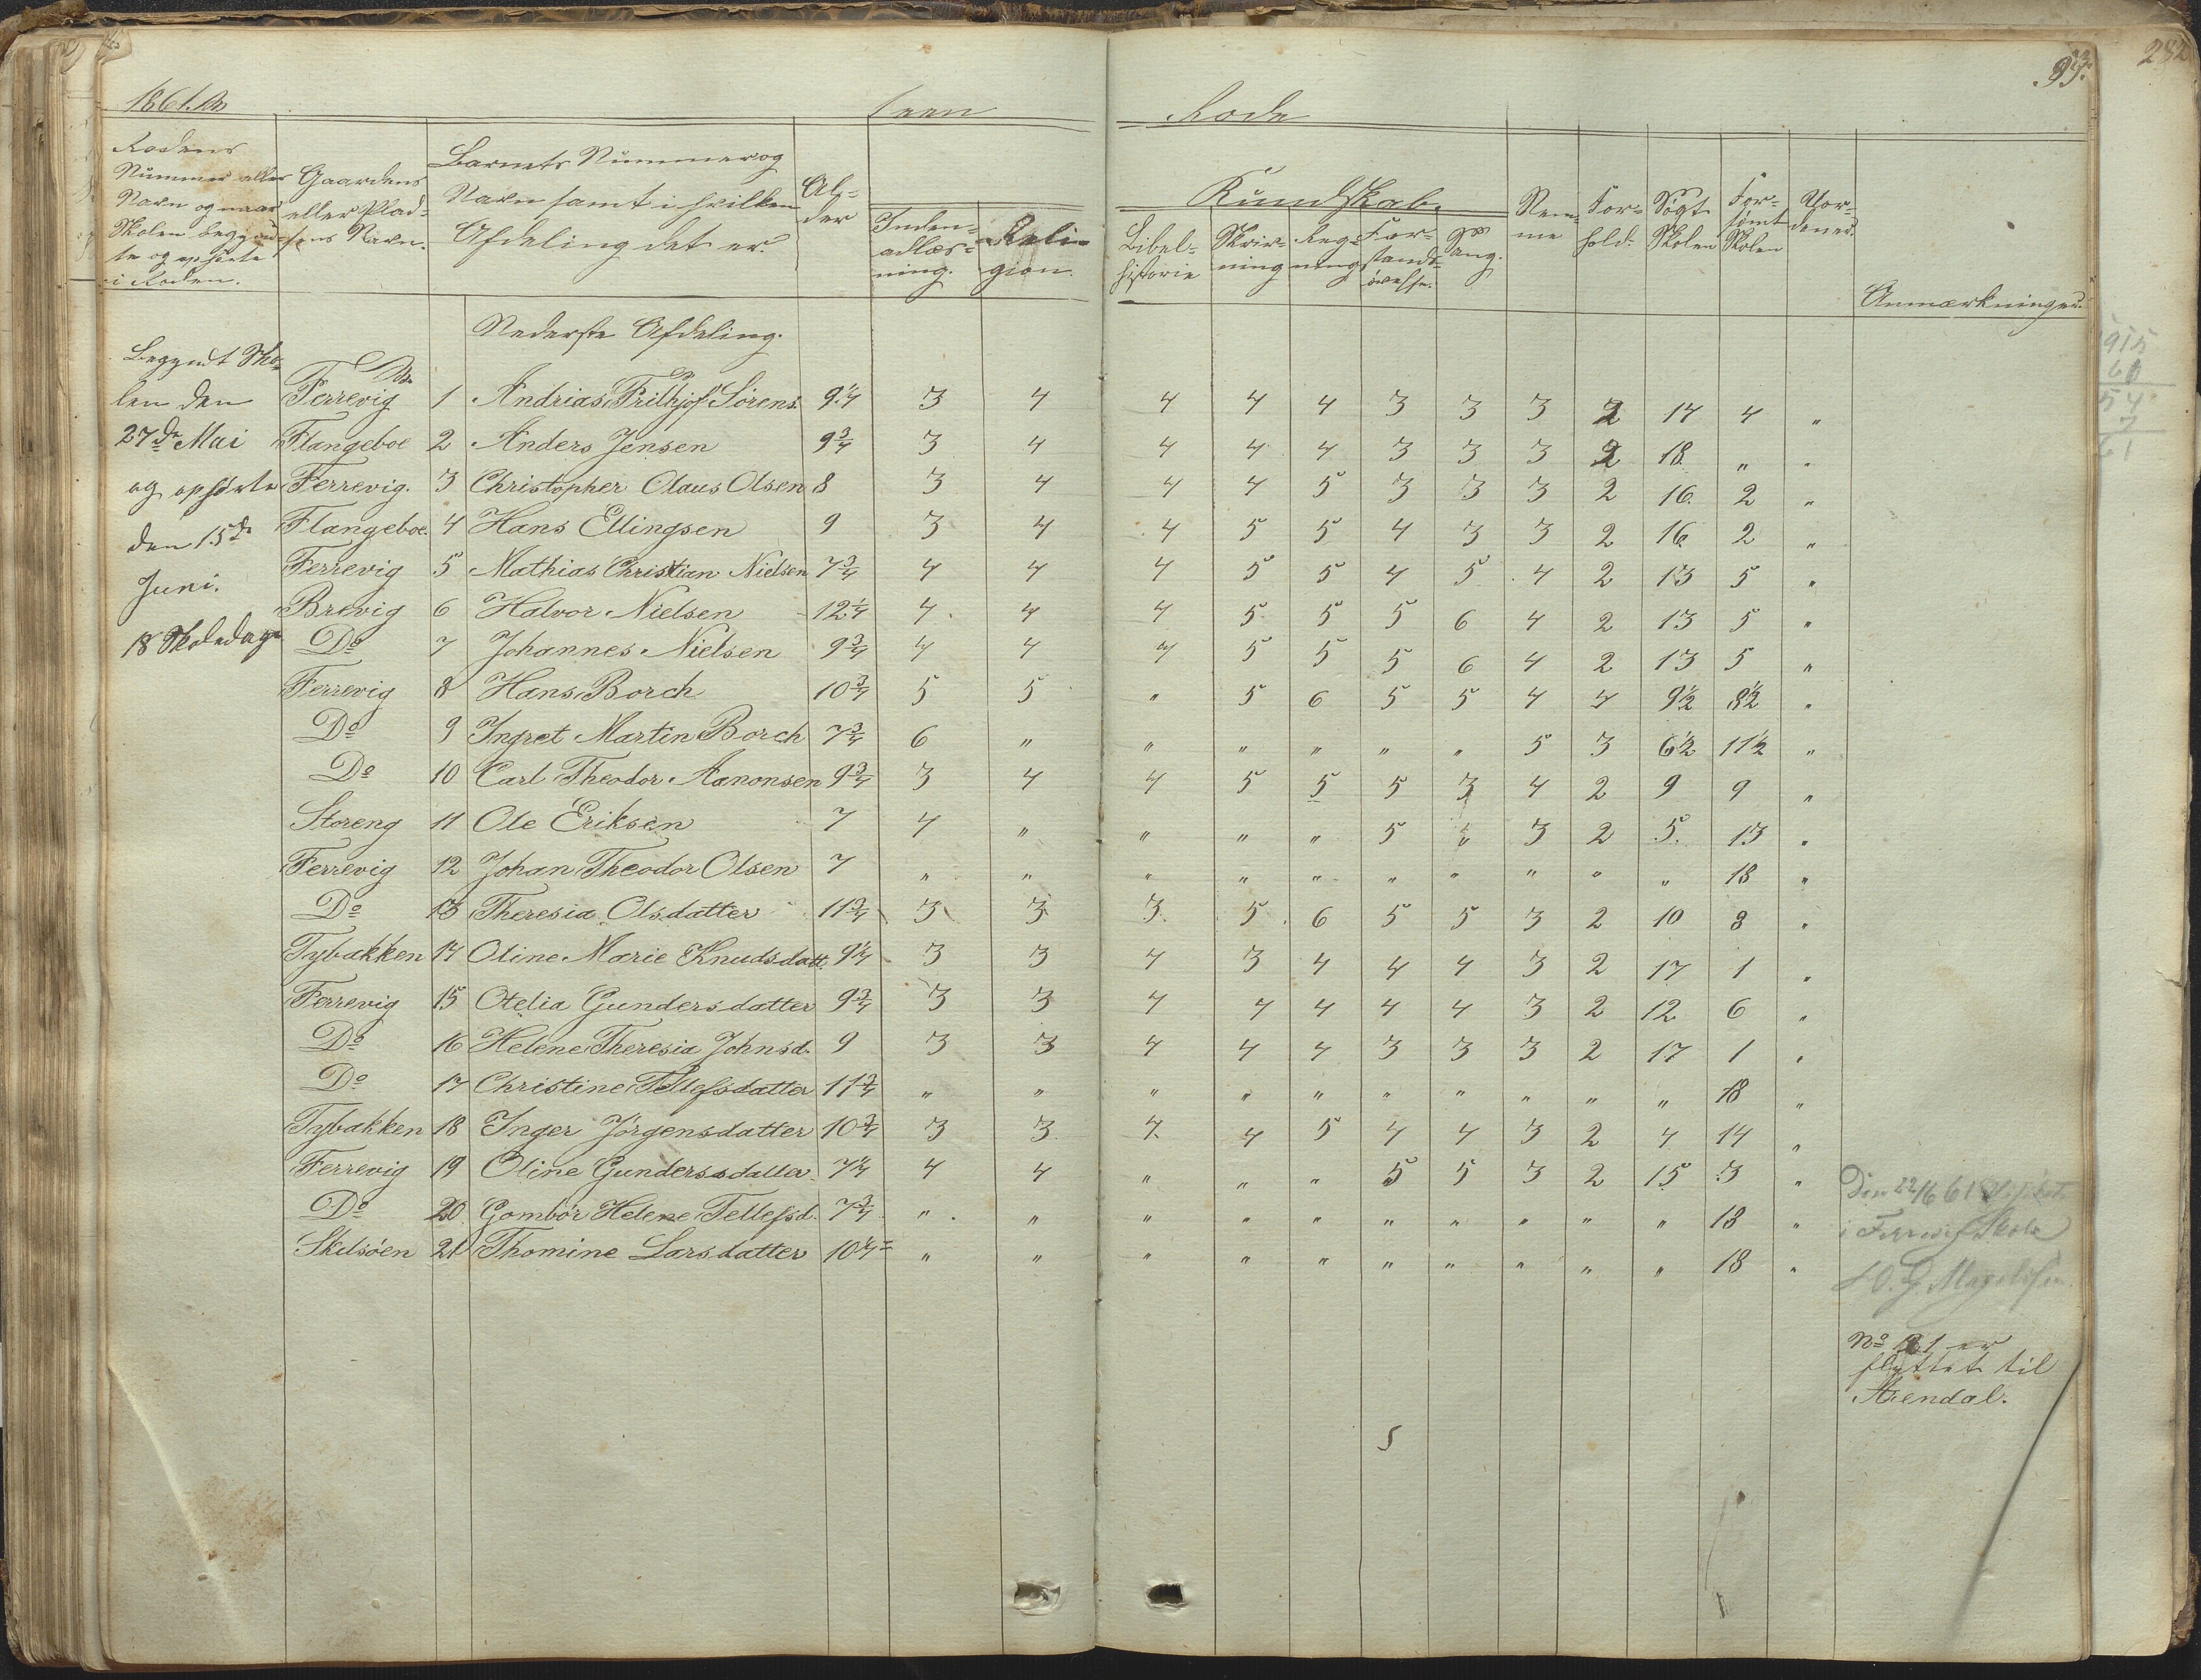 1861. 1een Rode 93. 282
Rodens Nummer eller Navn og naar Skolen begyndte og ophørte i Roden.
Gaardens eller Pladsens Navn.
Barnets Nummer og Navn samt i hvilken Afdeling det er.
Alder
Kundskab.
Indenadlæsning.
Religion.
Bibelhistorie
Skrivning
Regning
Forstandsøvelse.
Sang.
Nemme
Forhold.
Søgt Skolen
Forsømt Skolen
Anmærkninger.
Nederste Afdeling.
Begyndt Skolen den 27de Mai og ophørte den 15de Juni.
18 Skoledage
Ferrevig 1 Andrias Frithjof Sørens. 9 1/4 3 4 4 4 4 3 3 3 2 14 4 "
Flangeboe 2 Anders Jensen 9 3/4 3 4 4 4 4 3 3 3 2 18 " "
Ferrevig. 3 Christopher Olaus Olsen 8 3 4 4 4 5 3 3 3 2 16 2 "
Flangeboe. 4 Hans Ellingsen 9 3 4 4 5 5 4 3 3 2 16 2 "
Ferrevig 5 Mathias Christian Nielsen 7 3/4 4 4 4 5 5 4 5 4 2 13 5 "
Brevig 6 Halvor Nielsen 12 1/4 4 4 4 5 5 5 6 4 2 13 5 "
Do 7 Johannes Nielsen 9 3/4 4 4 4 5 5 5 6 4 2 13 5 "
Ferrevig 8 Hans Borch 10 3/4 5 5 " 5 6 5 5 4 4 9 1/2 8 1/2 "
Do 9 Ingret Martin Borch 7 3/4 6 " " " " " " 5 3 6 1/2 11 1/2 "
Do 10 Carl Theodor Aanonsen 9 3/4 3 4 4 5 5 5 3 4 2 9 9 "
Storeng 11 Ole Eriksen 7 4 " " " " 5 " 3 2 5. 13 "
Ferrevig 12 Johan Theodor Olsen 7 " " " " " " " " " " 18 "
Do 13 Theresia Olsdatter 11 3/4 3 3 3 5 6 5 5 3 2 10 8 "
Tybakken 14 Oline Marie Knudsdatt. 9 1/4 3 3 4 3 4 4 4 3 2 17 1 "
Ferrevig 15 Otelia Gundersdatter 9 3/4 3 3 4 4 4 4 4 3 2 12 6 "
Do 16 Helene Theresia Johnsd. 9 3 3 4 4 4 3 3 3 2 17 1 "
Do 17 Christine Tellefsdatter 11 3/4 " " " " " " " " " " 18 "
Tybakken 18 Inger Jörgensdatter 10 3/4 3 3 4. 4 5 4 4 3 2 4 14 "
Ferrevig 19 Oline Gundersdatter 7 1/4 4 4 " " " 5 5 3 2 15 3 "
Do 20 Gombör Helene Tellefsd. 7 3/4 " " " " " " " " " " 18 "
Skilsöen 21 Thomine Larsdatter 10 1/4 " " " " " " " " " " 18 "
Den 22/6 61
i Ferrevig Skole
No 21 er
flyttet til
Arendal.